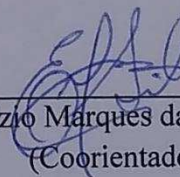 zio Marques da
(Coorientado